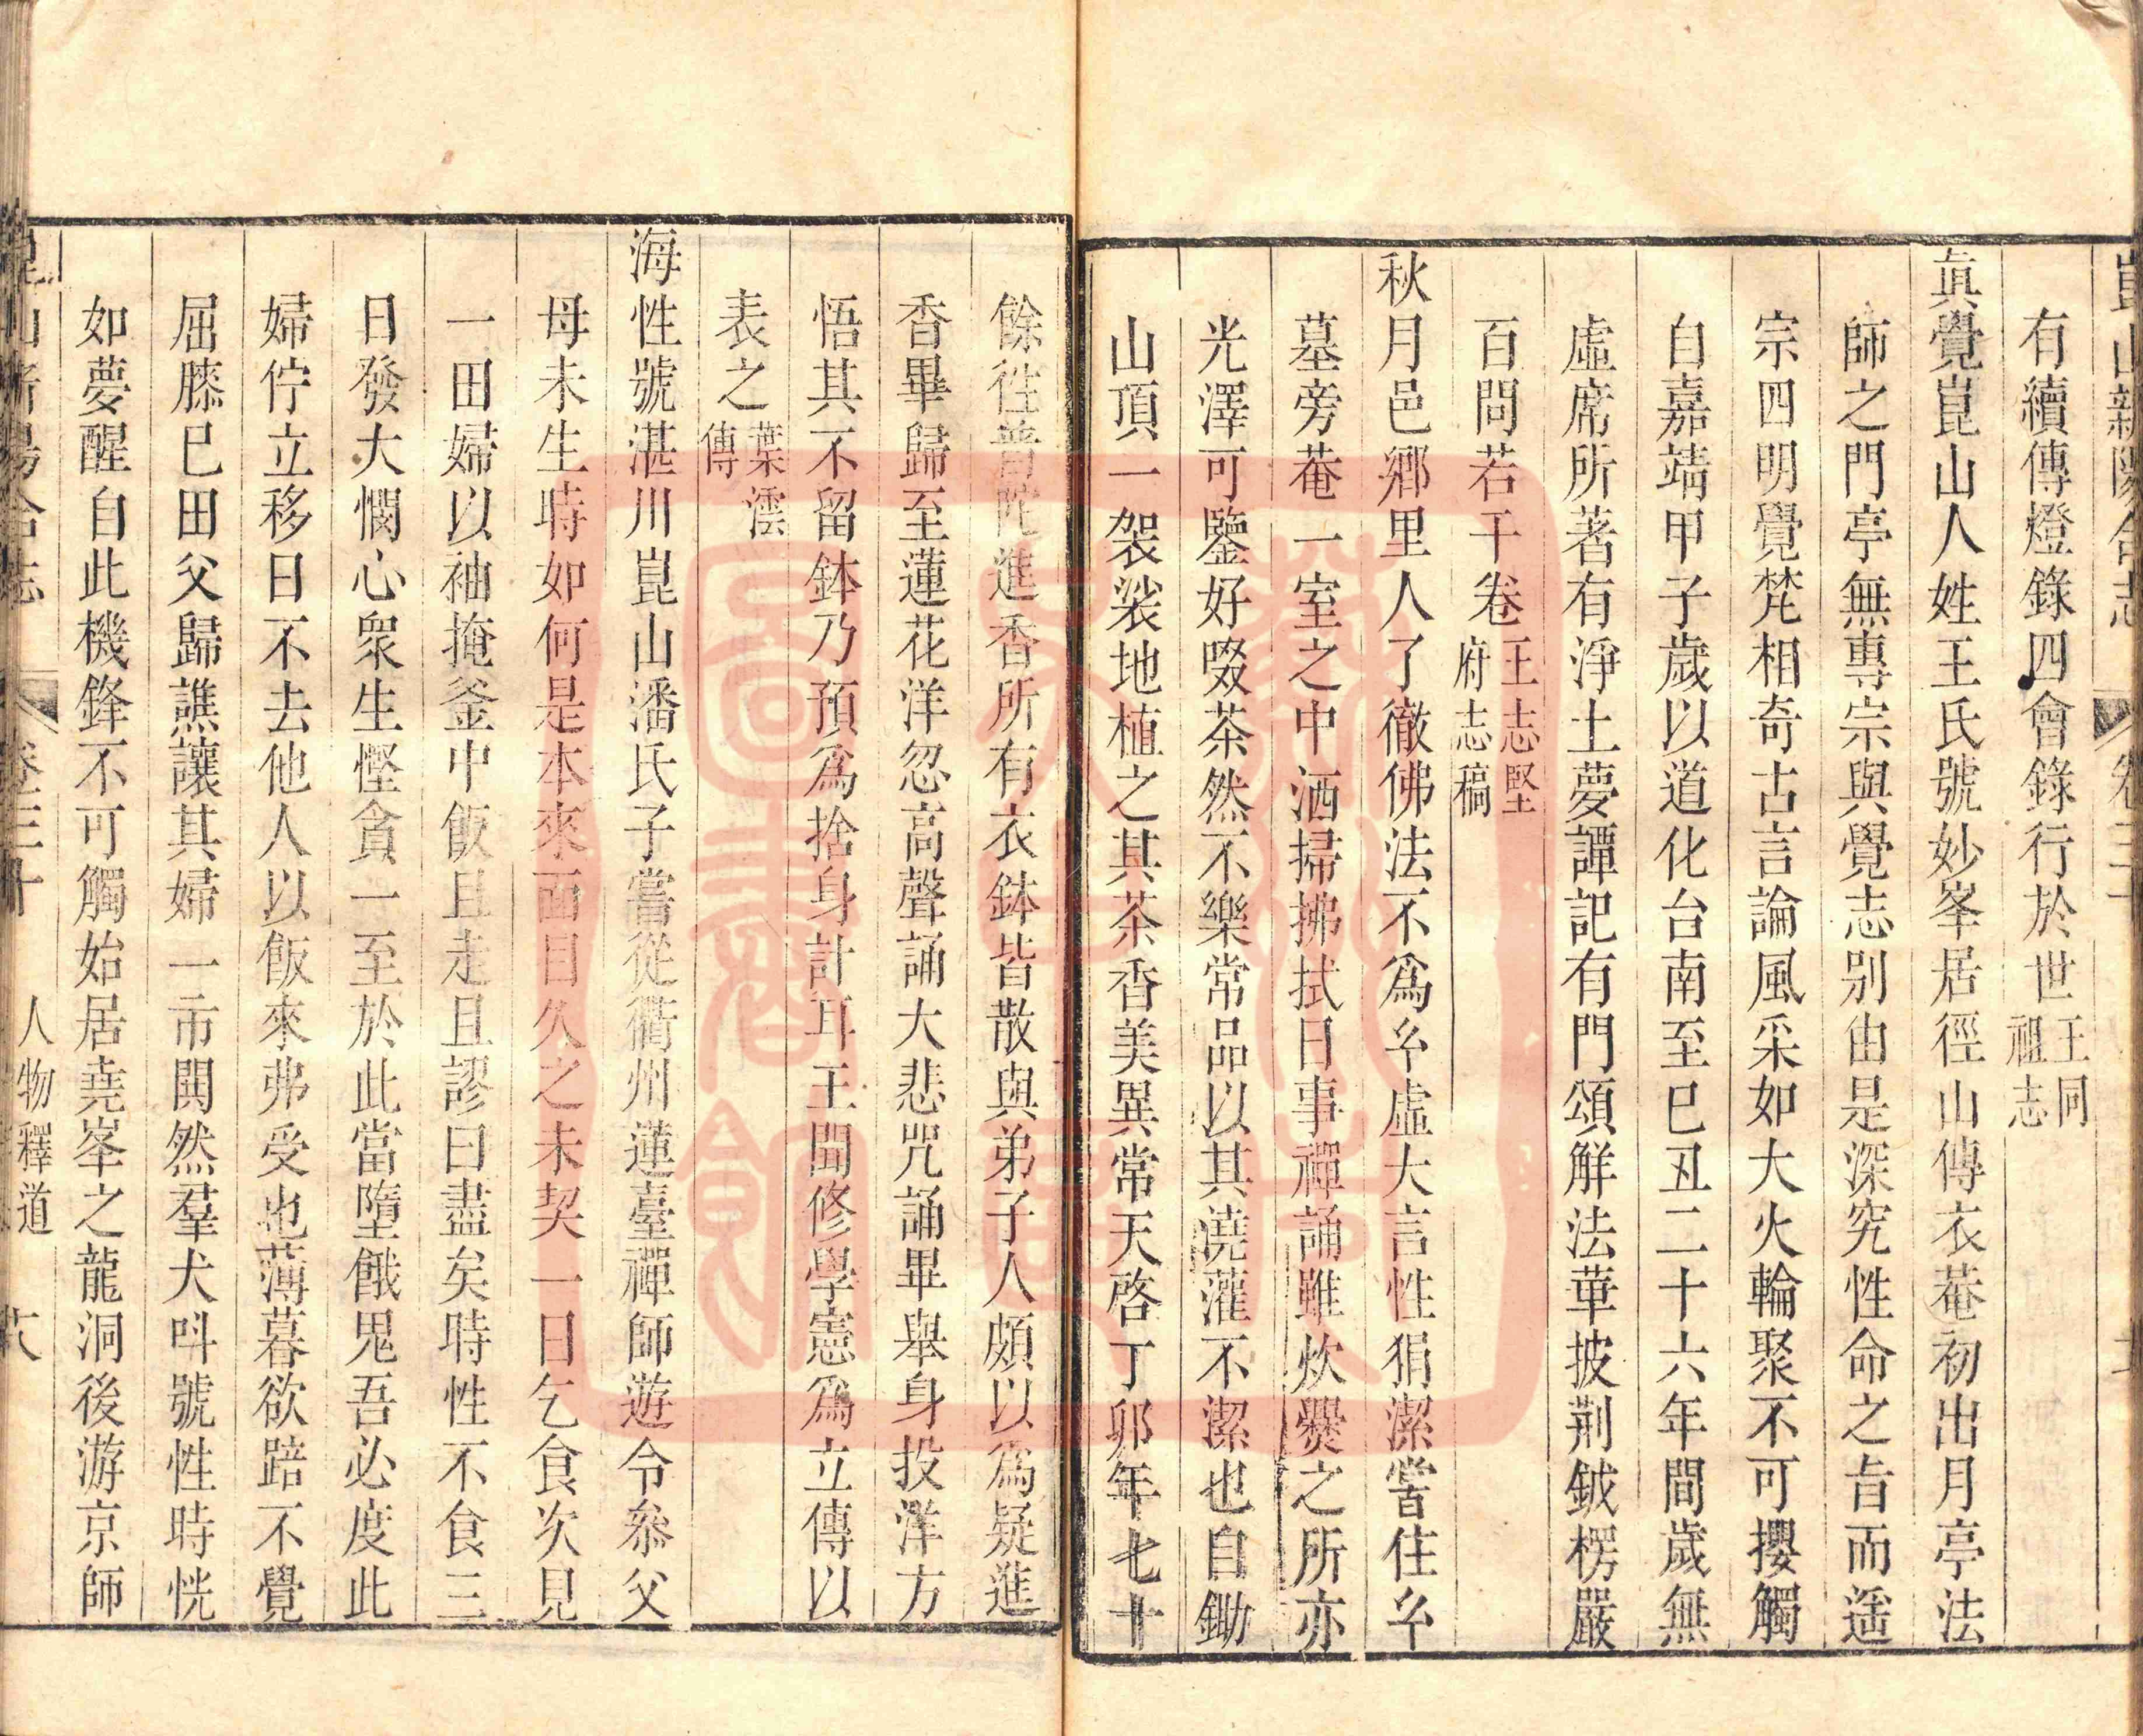 崑山新陽合志 卷三十
有續傳燈錄四會錄行於世王同祖志
眞覺崑山人姓王氏號妙峯居徑山傳衣菴初出月亭法
師之門亭無專宗與覺志别由是深究性命之旨而遥
宗四明覺梵相奇古言論風采如大火輪聚不可攖觸
自嘉靖甲子歲以道化台南至巳丑二十六年間歲無
虛席所著有淨土夢譚記有門頌解法華披荆鈸楞嚴
百問若干卷王志堅府志稿
秋月邑鄉里人了徹佛法不爲幺虛大言性狷潔嘗住幺
墓旁菴一室之中洒掃拂拭日事禪誦雖炊爨之所亦
光澤可鑒好啜茶然不樂常品以其澆灌不潔也自鋤
山頂一袈裟地植之其茶香美異常天啓丁卯年七十
餘徃普陀進香所有衣鉢皆散與弟子人頗以爲疑進
香畢歸至蓮花洋忽高聲誦大悲咒誦畢舉身投洋方
悟其不留鉢乃預爲捨身計耳王聞修學憲爲立傳以
表之葉澐傳
海性號湛川崑山潘氏子嘗從衢州蓮臺禪師遊令叅父
母未生時如何是本來面目久之未契一日乞食次見
一田婦以袖掩釜中飯且走且謬曰盡矣時性不食三
日發大憫心衆生慳貪一至於此當墮餓鬼吾必度此
婦佇立移日不去他人以飯來弗受也薄暮欲踣不覺
屈膝巳田父歸譙讓其婦一市鬨然羣犬呌號性時恍
如夢醒自此機鋒不可觸始居堯峯之龍洞後游京師
崑山新陽合志 卷三十 人物釋道 六